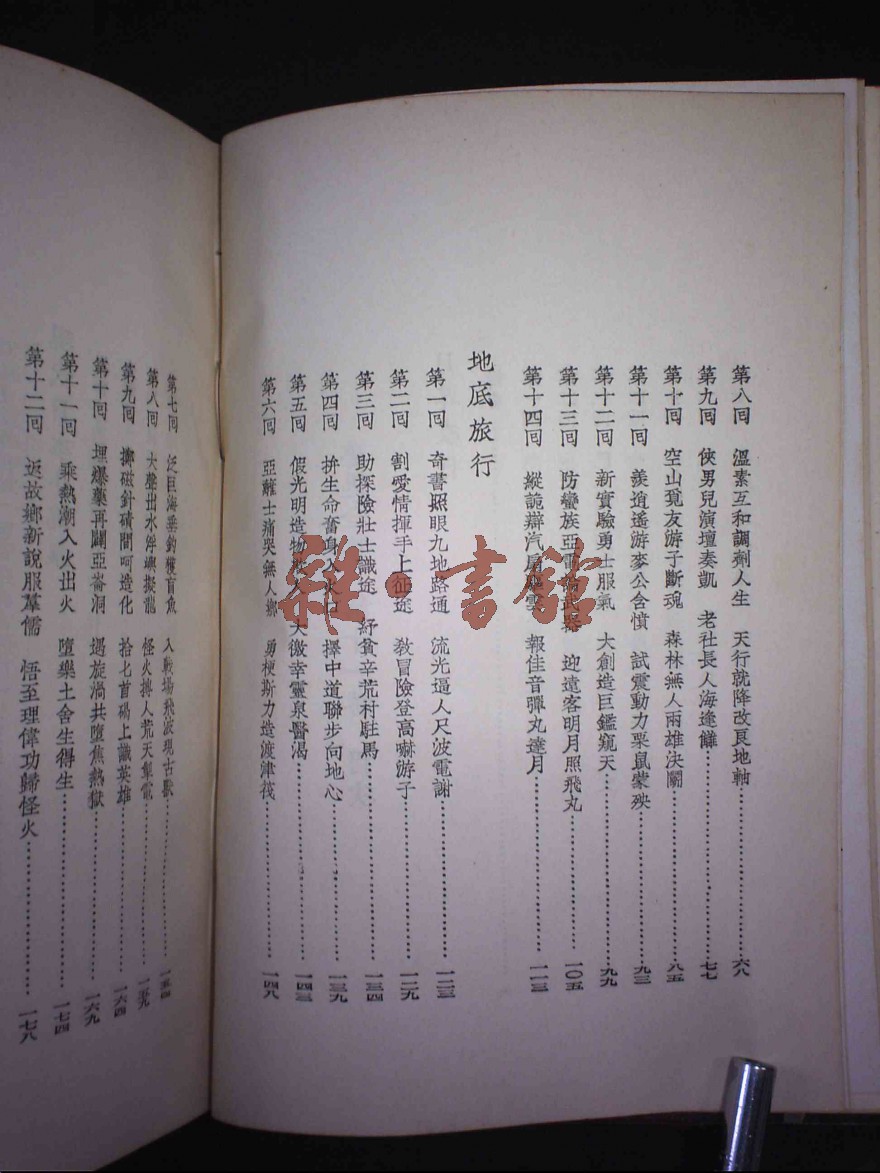 第八回　溫素互和調劑人生　天行就降改良地軸……六八
第九回　俠男兒演壇奏凱　老社長人海逢讎……七七
第十回　空山覓友游子斷魂　森林無人兩雄決鬭……八五
第十一回　羨逍遙游麥公含憤　試震動力栗鼠蒙殃……九三
第十二回　新實驗勇士服氣　大創造巨鑑窺天……九九
第十三回　防蠻族亞電論武器　迎遠客明月照飛丸……一〇五
第十四回　縱詭辯汽扇　報佳音彈丸達月……一一三
地底旅行
第一回　奇書照眼九地路通　流光逼人尺波電謝……一二三
第二回　割愛情揮手上征途　敎冒險登高嚇游子……一二九
第三回　助探險壯士識途　紓貧辛荒村駐馬……一三四
第四回　拚生命奮身入火口　擇中道聯步向地心……一三九
第五回　假光明造物欺人　大徼幸靈泉醫渴……一四三
第六回　亞蘺士痛哭無人鄉　勇梗斯力造渡津筏……一四八
第七回　泛巨海垂釣獲盲魚　入戰場飛波現古獸……一五四
第八回　大聲出水浮嶼擬龍　怪火搏人荒天掣電……一五九
第九回　擲磁針碛間呵造化　拾匕首碣上識英雄……一六四
第十回　埋爆藥再闢亞崙洞　遇旋渦共墮焦熱獄……一六九
第十一回　乘熱潮入火出火　墮樂土舍生得生……一七四
第十二回　返故鄉新說服羣儒　悟至理偉功歸怪火……一七八
雜·書館